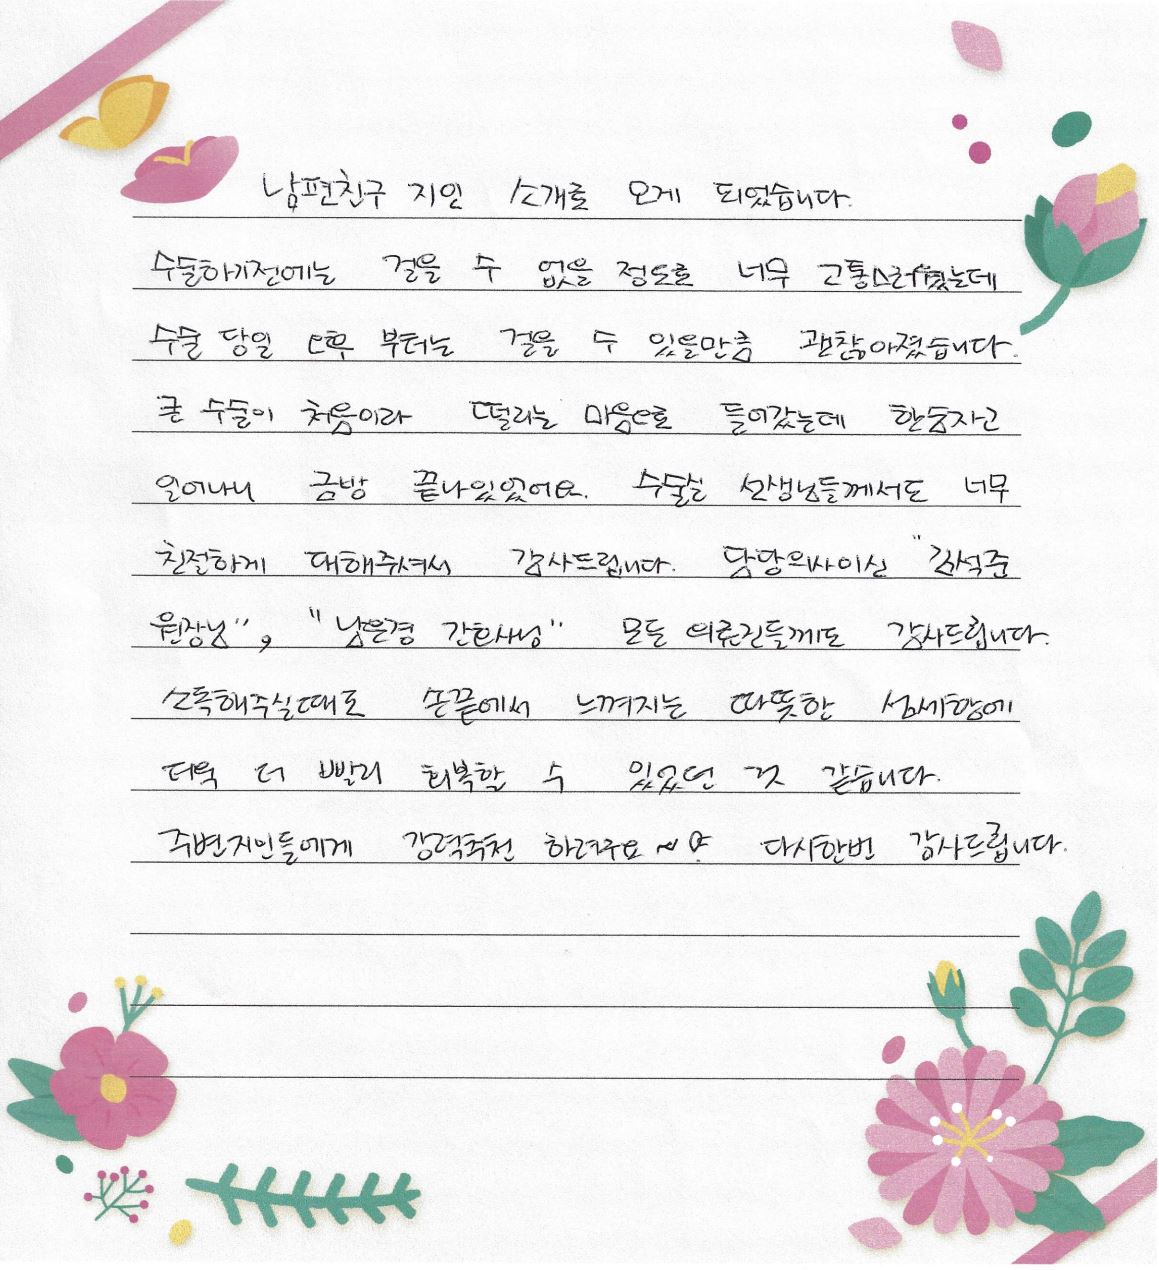 남편친구 지인 소개로 오게 되었습니다.
수술하기전에는 걸을 수 없을 정도로 너무 고통스러웠는데
수술 당일 오후 부터는 걸을 수 있을만큼 괜찮아졌습니다.
큰 수술이 처음이라 떨리는 마음으로 들어갔는데 한숨자고
일어나니 금방 끝나있었어요. 수술실 선생님들께서도 너무
친절하게 대해주셔서 감사드립니다. 담당의사이신 "김석준
원장님", "남은경 간호사님" 모든 의료진들께도 감사드립니다.
소독해주실때도 손끝에서 느껴지는 따뜻한 섬세함에
더욱 더 빨리 회복할 수 있었던 것 같습니다.
주변지인들에게 강력추천 하려구요~ 다시한번 감사드립니다.